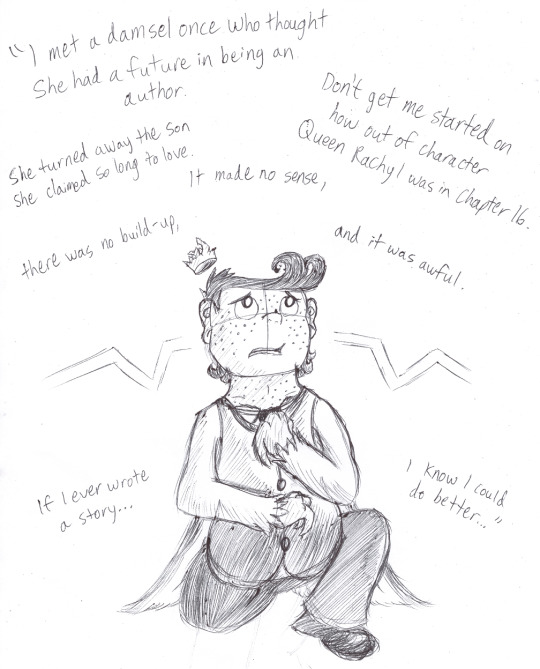 "I met a damsel once who thought
She had a future in being an
author.
She turned away the son
she claimed so long to love.
It made no sense,
there was no build-up,
Don't get me started on
how out of character
Queen Rachyl was in Chapter 16.
and it was awful.
If I ever wrote
a story...
I know I could
do better..."